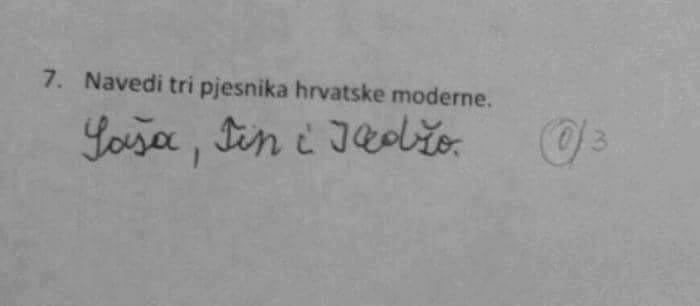 7. Navedi tri pjesnika hrvatske moderne.
Saša, Tin i Kedžo.
0/3